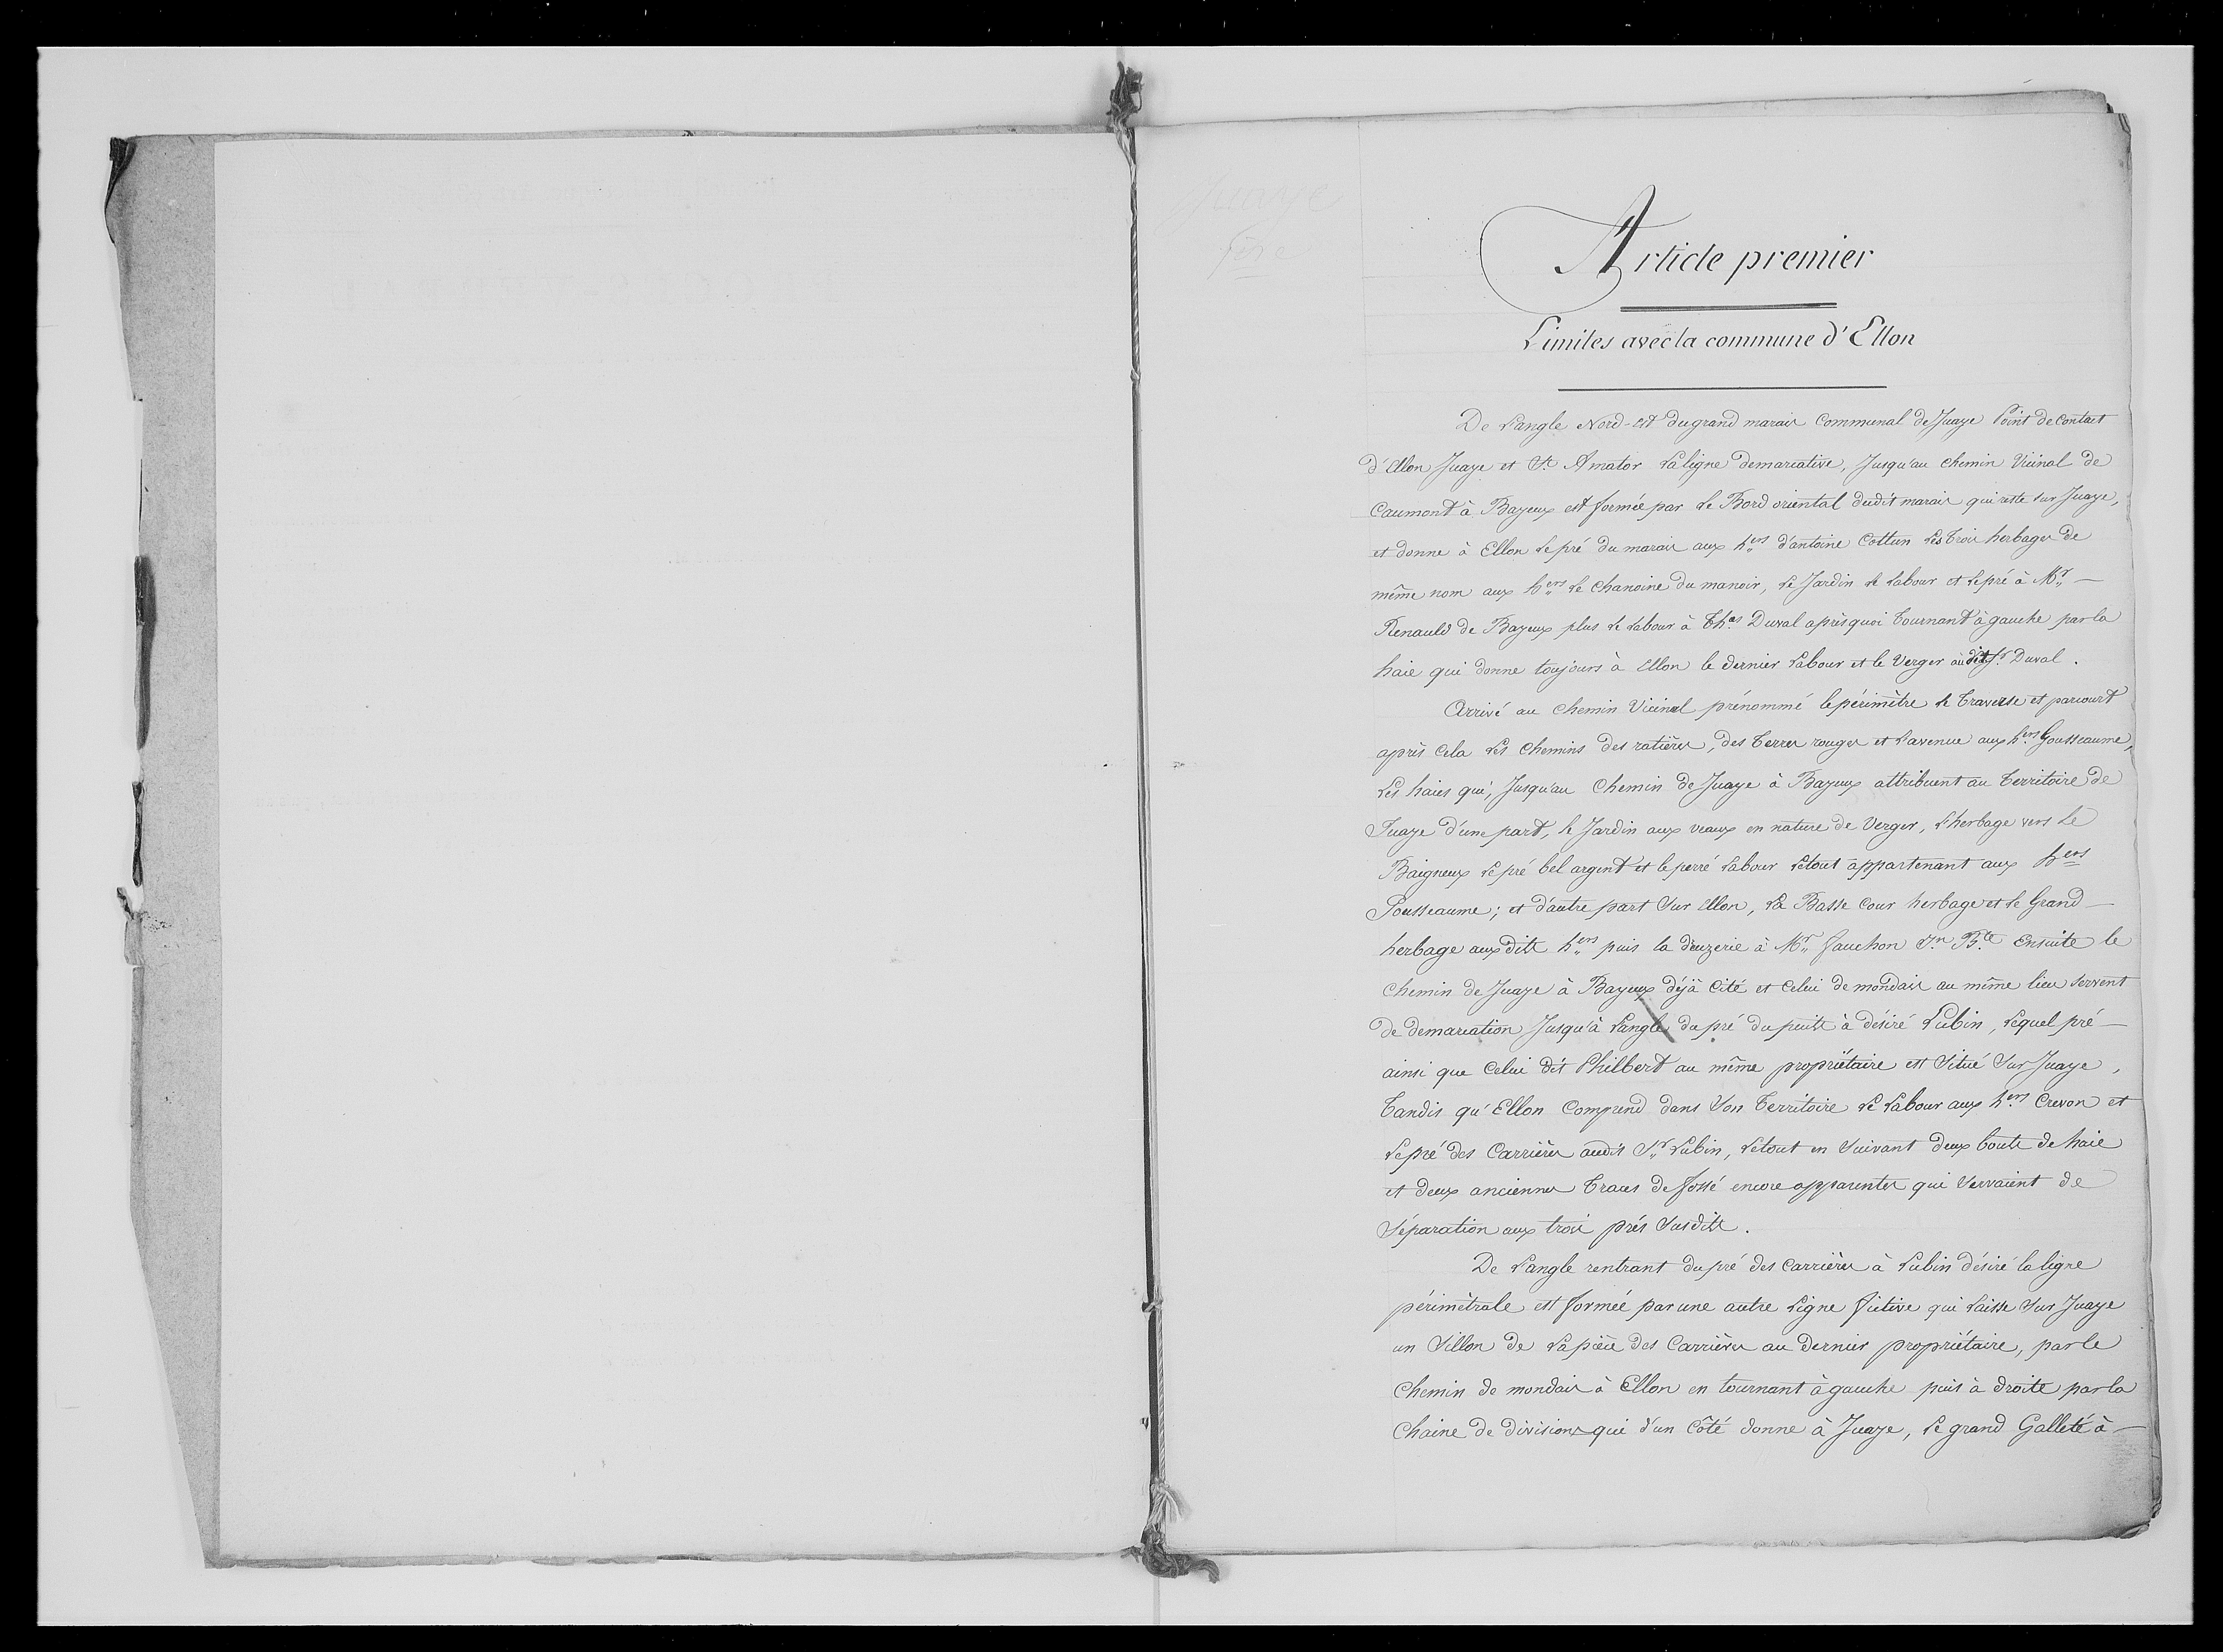 Juaye
Article premier
Limites avec la commune d'Ellon
De l'angle Nord-est du grand marais Communal de Juaye Point de Contact
d'Ellon Juaye et St. Amator la ligne demarcative, Jusqu'au chemin Vicinal de
Caumont à Bayeux est formée par le Bord oriental dudit marais qui reste sur Juaye,
et donne à Ellon le pré du marais aux hers d'antoine Cottun les trois herbages de
même nom aux hers le Chanoine du manoir, le Jardin le labour et le pré à Mr —
Renauld de Bayeux plus le labour à Thas Duval après quoi tournant à gauche par la
haie qui donne toujours à Ellon le dernier labour et le Verger au dit Sr. Duval.
Arrivé au chemin Vicinal prénommé le périmètre le traverse et parcourt
après cela les chemins des ratières, des terres rouges et l'avenue aux hers Gousseaume,
les haies qui, Jusqu'au Chemin de Juaye à Bayeux attribuent au territoire de
Juaye d'une part, le Jardin aux veaux en nature de Verger, l'herbage vers le
Baigneux le pré bel argent et le perré labour le tout appartenant aux hers
Gousseaume; et d'autre part sur Ellon, la Basse Cour herbage et le Grand —
herbage aux dits hers puis la deuzerie à Mr fauchon Jn Bte Ensuite le
chemin de Juaye à Bayeux déjà Cité et Celui de mondais au même lieu servent
de demarcation Jusqu'à l'angle du pré du puits à désiré Lubin, lequel pré —
ainsi que Celui dit Philbert au même propriétaire est Situé Sur Juaye,
tandis qu'Ellon Comprend dans son territoire le labour aux hers Crevon et
le pré des Carrières audit Sr Lubin, le tout en Suivant deux bouts de haie
et deux anciennes traces de fossé encore apparentes qui Servaient de
Séparation aux trois prés Susdits.
De l'angle rentrant du pré des carrières à Lubin désiré la ligne
périmètrale est formée par une autre ligne fictive qui laisse Sur Juaye
un Sillon de la pièce des Carrières au dernier propriétaire, par le
Chemin de mondais à Ellon en tournant à gauche puis à droite par la
Chaine de divisions qui d'un Côté donne à Juaye, le grand Galleté à —